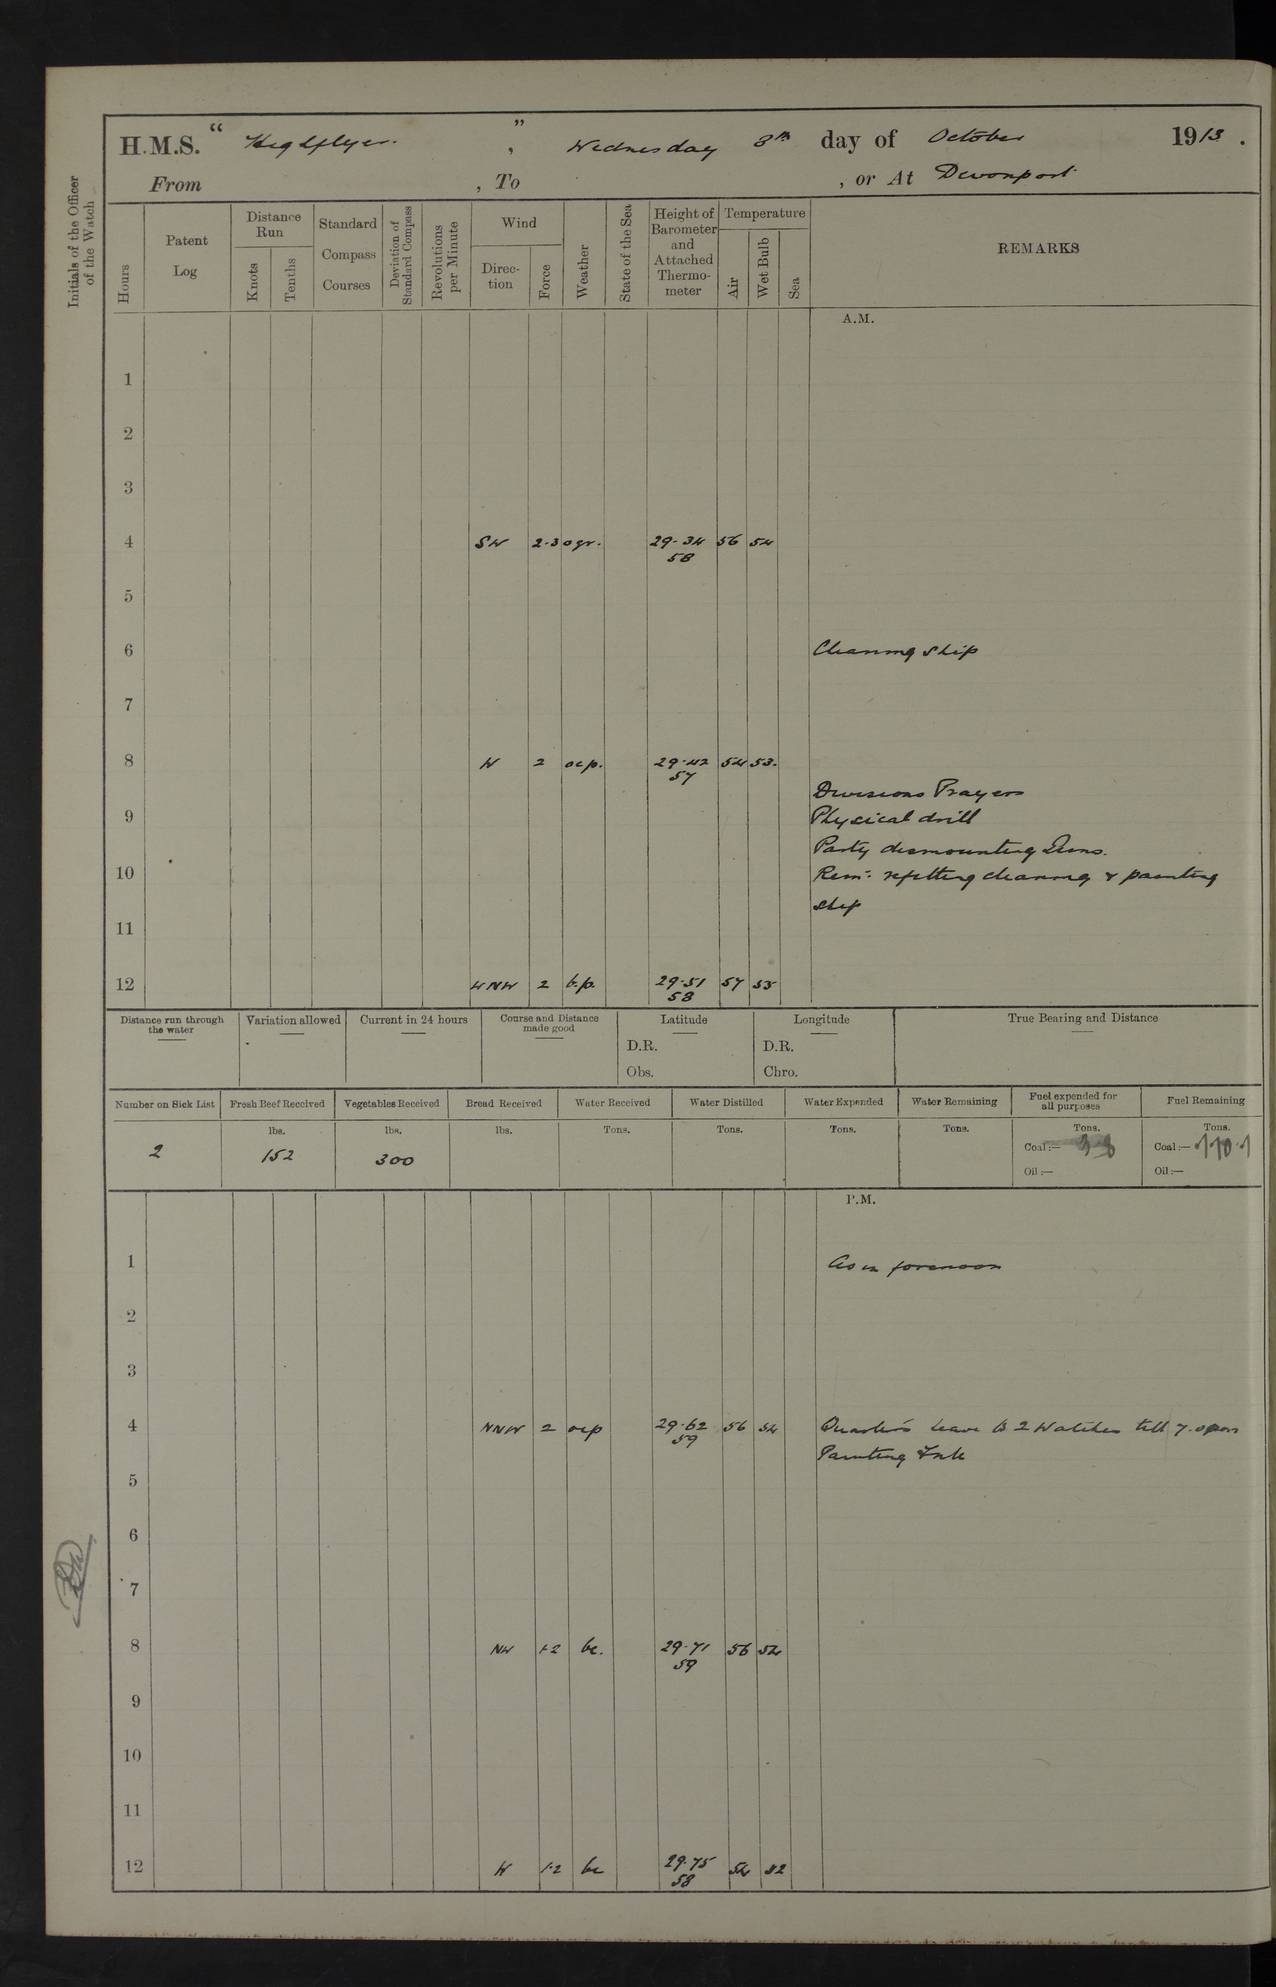 H.M.S. “ Highflyer. ” , Wednesday 8th day of October 1913 .
From , To , or At Devonport
Initials of the Officer of the Watch
Hours
Patent Log
Distance Run
Knots
Tenths
Standard Compass Courses
Deviation of Standard Compass
Revolutions per Minute
Wind
Direction
Force
Weather
State of the Sea
Height of Barometer and Attached Thermometer
Temperature
Air
Wet Bulb
Sea
REMARKS
A.M.
1
2
3
4 SW 2-3 ogr. 29-34 56 54
58
5
6 Cleaning ship
7
8 W 2 ocp. 29-42 54 53.
57
Divisions Prayers
9 Physical drill
Party dismounting Guns.
10 Remr. refitting cleaning & painting
ship
11
12 WNW 2 b.p. 29-51 57 55
58
Distance run through the water
Variation allowed
Current in 24 hours
Course and Distance made good
Latitude
D.R.
Obs.
Longitude
D.R.
Chro.
True Bearing and Distance
Number on Sick List
2
Fresh Beef Received
lbs.
152
Vegetables Received
lbs.
300
Bread Received
lbs.
Water Received
Tons.
Water Distilled
Tons.
Water Expended
Tons.
Water Remaining
Tons.
Fuel expended for all purposes
Tons.
Coal:—
Oil:—
Fuel Remaining
Tons.
Coal:—
Oil:—
P.M.
1 As in forenoon
2
3
4 NNW 2 ocp 29-62 56 54 Quarters leave to 2 Watches till 7.0pm
59 Painting
5
6
7
8 NW 1-2 bc. 29-71 56 54
59
9
10
11
12 W 1-2 bc 29-75 54 52
58